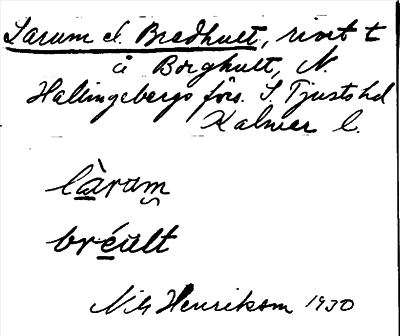 Larum el. Bredhult, rivet t
å Borghult, N.
Hallingebergs förs. S. Tjusts hd
Kalmar l.
làram̯
bréult
Nils Henriksson 1930